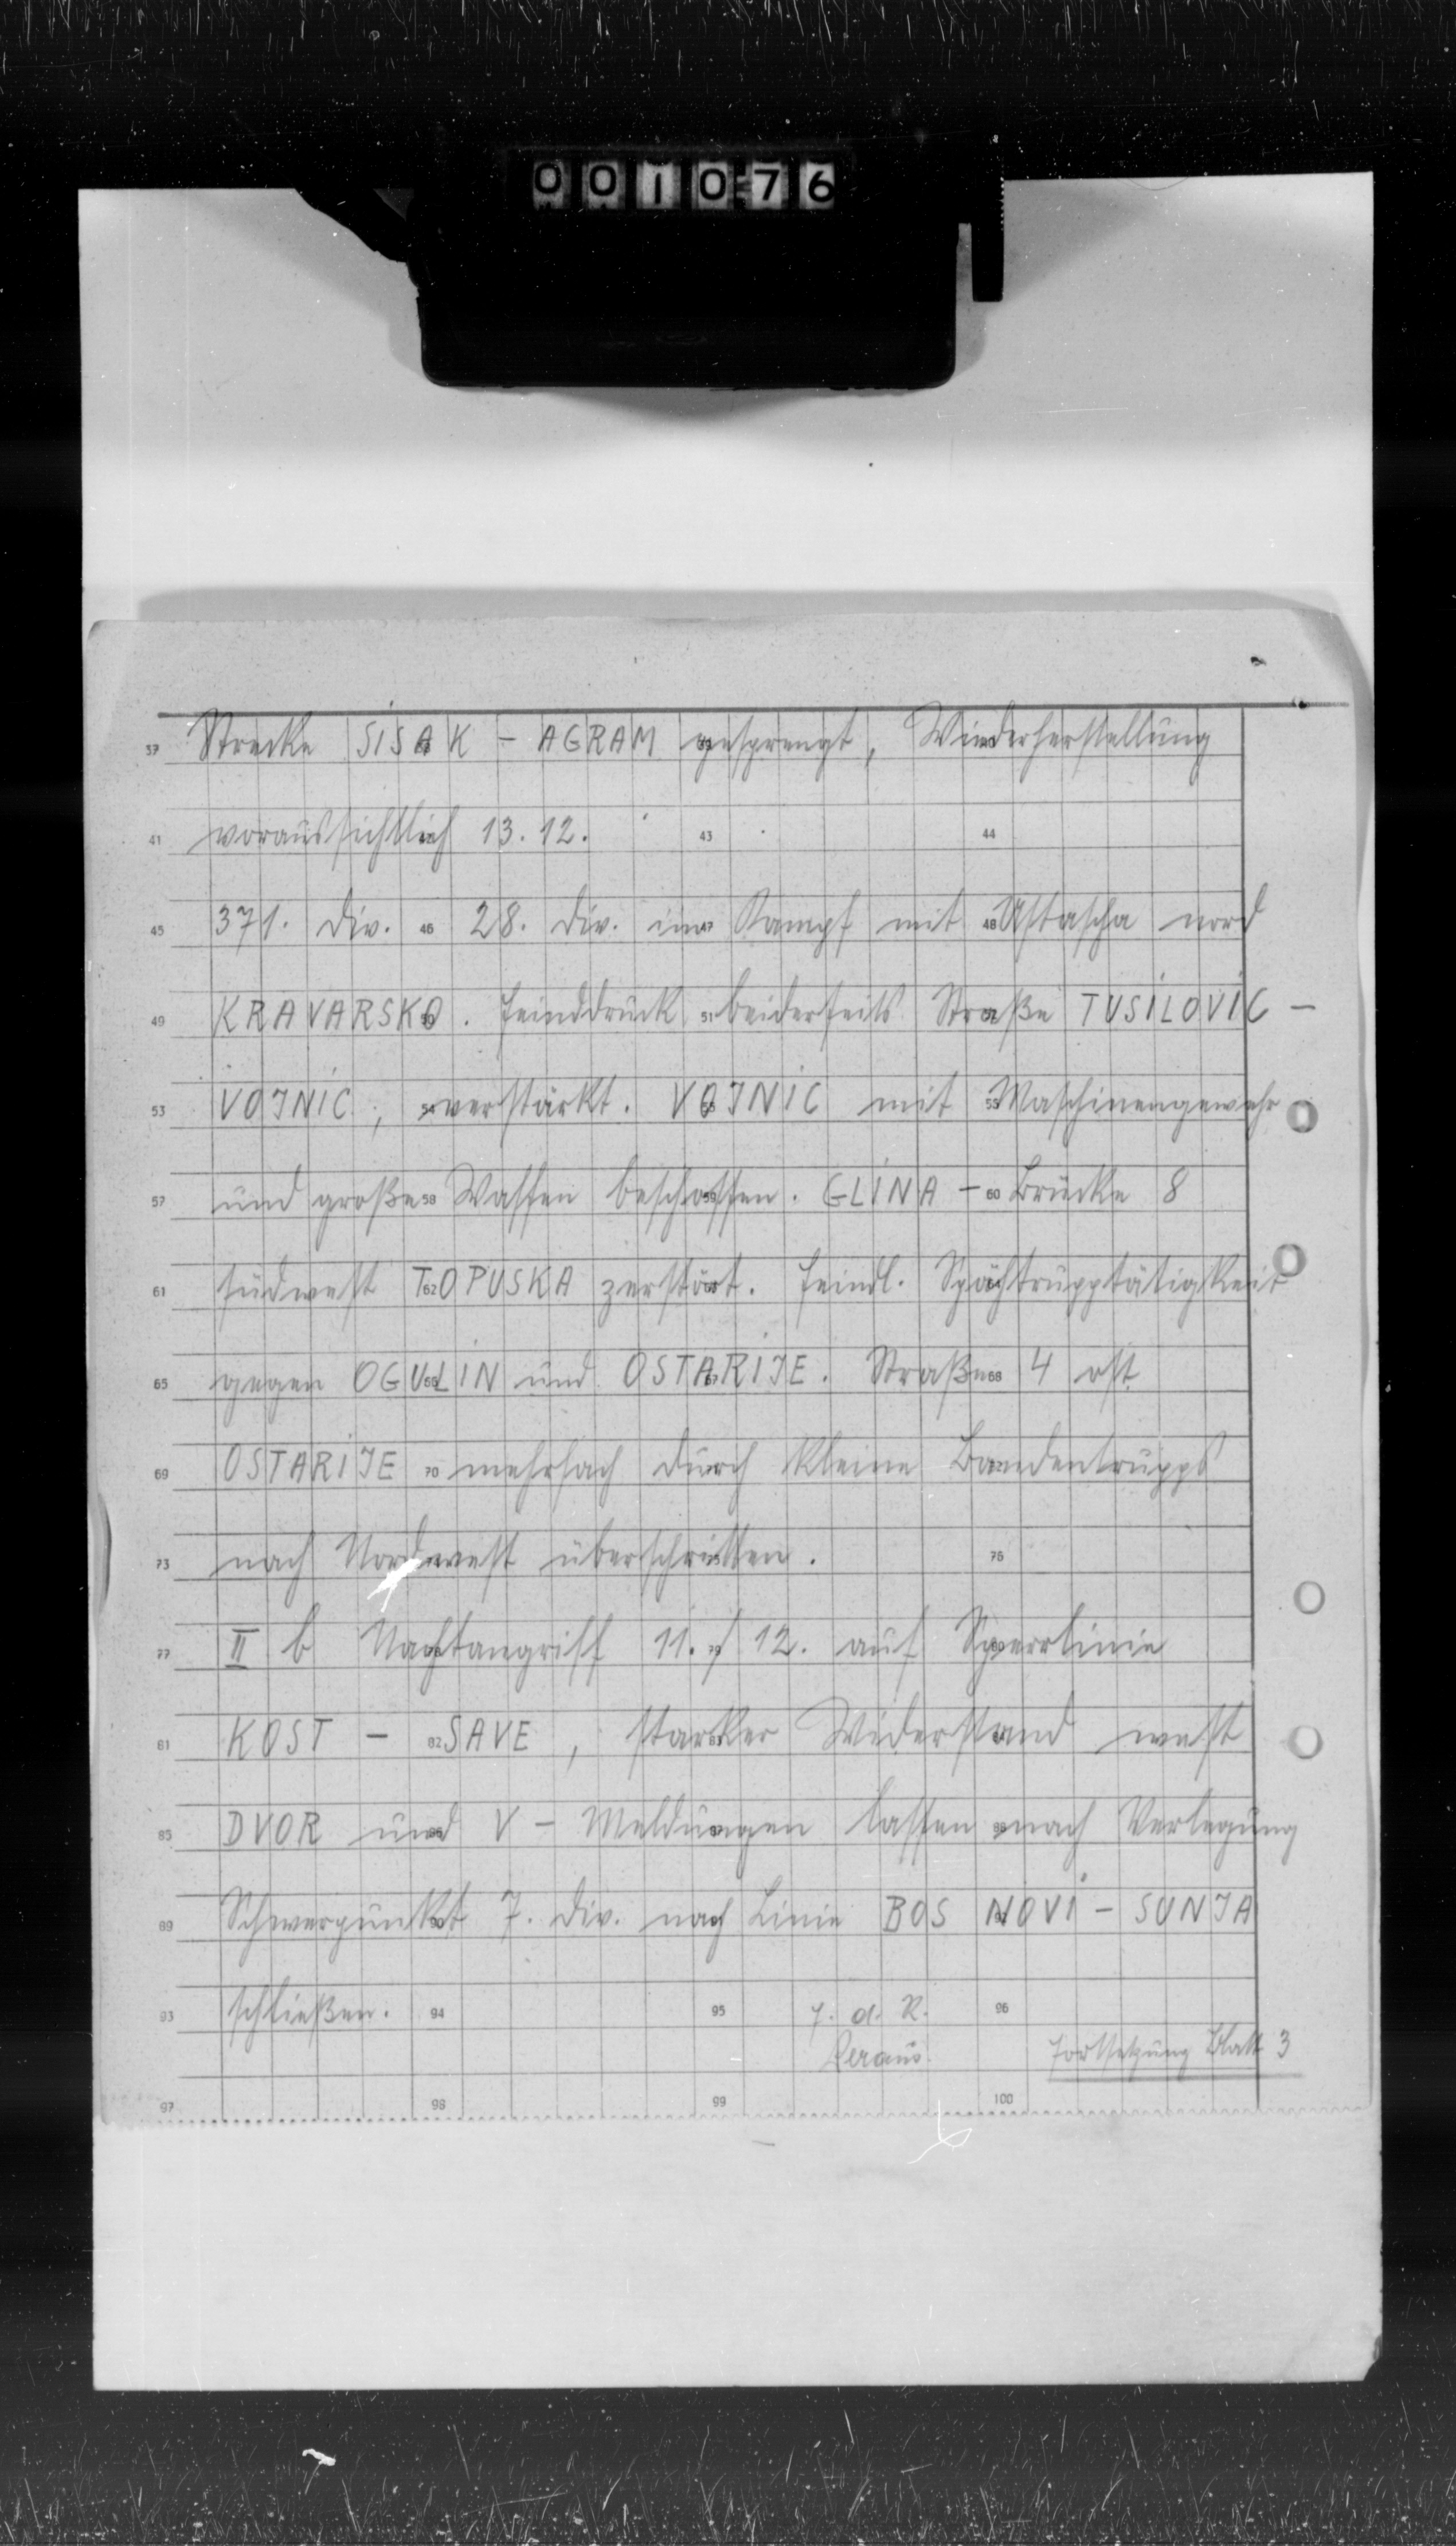 001076
37 Strecke SISAK - AGRAM gesprengt, Wiederherstellung
41 voraussichtlich 13.12. 43 44
45 371. Div. 46 28. Div. im 47 Kampf mit 48 Ustascha nord
49 KRAVARSKO. Feinddruck 51 beiderseits Straße TUSILOVIC -
53 VOJNIC, 54 verstärkt. VOJNIC mit 55 Maschinengewehr
57 und große 58 Waffen beschossen. GLINA - 60 Brücke 8
61 südwest T 62 OPUSKA zerstört. Feindl. Spähtrupptätigkeit
65 gegen OGULIN und OSTARIJE. Straße 68 4 ost
69 OSTARIJE 70 mehrfach durch kleine Bandentrupps
73 nach Nordwest überschritten. 76
77 II b Nachtangriff 11./12. auf Sperrlinie
81 KOST - 82 SAVE, starker Widerstand west
85 DVOR und V - Meldungen lassen 88 nach Verlegung
89 Schwerpunkt 7. Div. nach Linie BOS NOVI - SUNJA
93 schließen. 94 95 F. d. R. 96
Fortsetzung Blatt 3
97 98 99 100